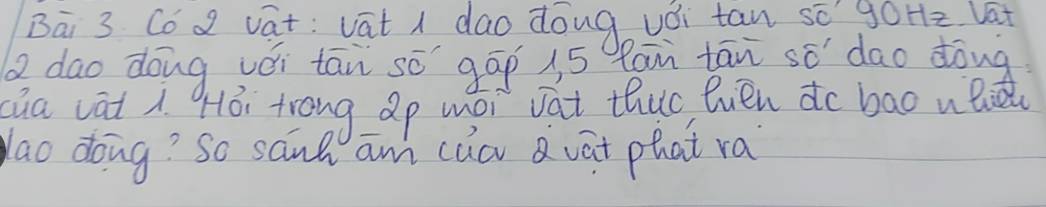 Bài 3. Có 2 vật: vật 1 dao động với tần số 90Hz. Vật
2 dao động với tần số gấp 1,5 lần tần số dao động
của vật 1. Hỏi trong 2p mỗi vật thực hiện đc bao nhiêu
dao động? So sánh âm của 2 vật phát ra